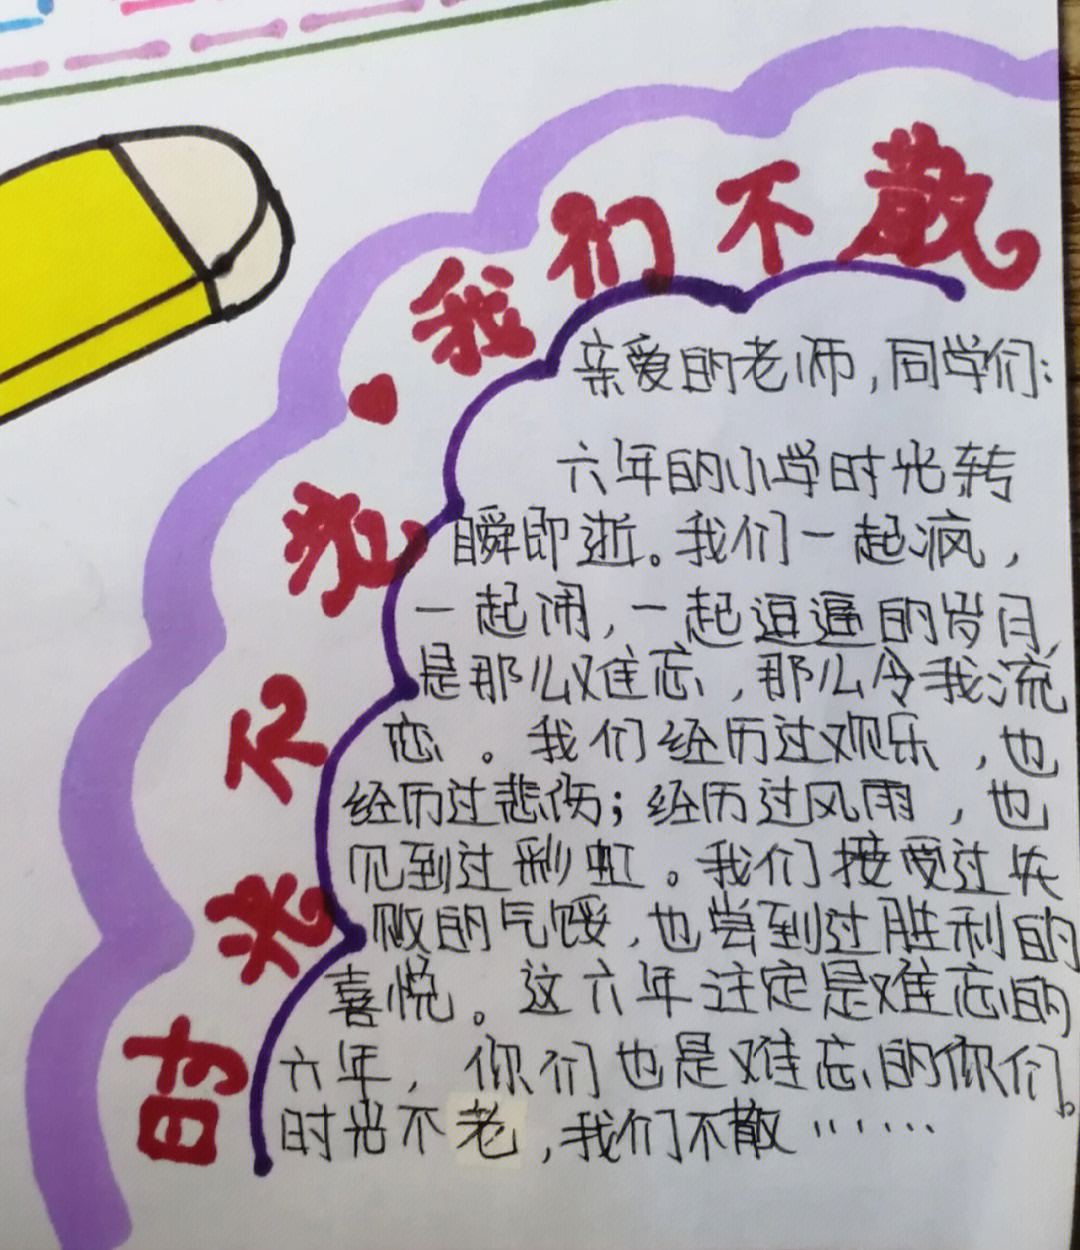 时光不老·我们不散
亲爱的老师,同学们:
六年的小学时光转
瞬即逝。我们一起疯,
一起闹,一起逗逼的岁月,
是那么难忘,那么令我流
恋。我们经历过欢乐,也
经历过悲伤;经历过风雨,也
见到过彩虹。我们接受过失
败的气馁,也尝到过胜利的
喜悦。这六年注定是难忘的
六年,你们也是难忘的你们。
时光不老,我们不散……